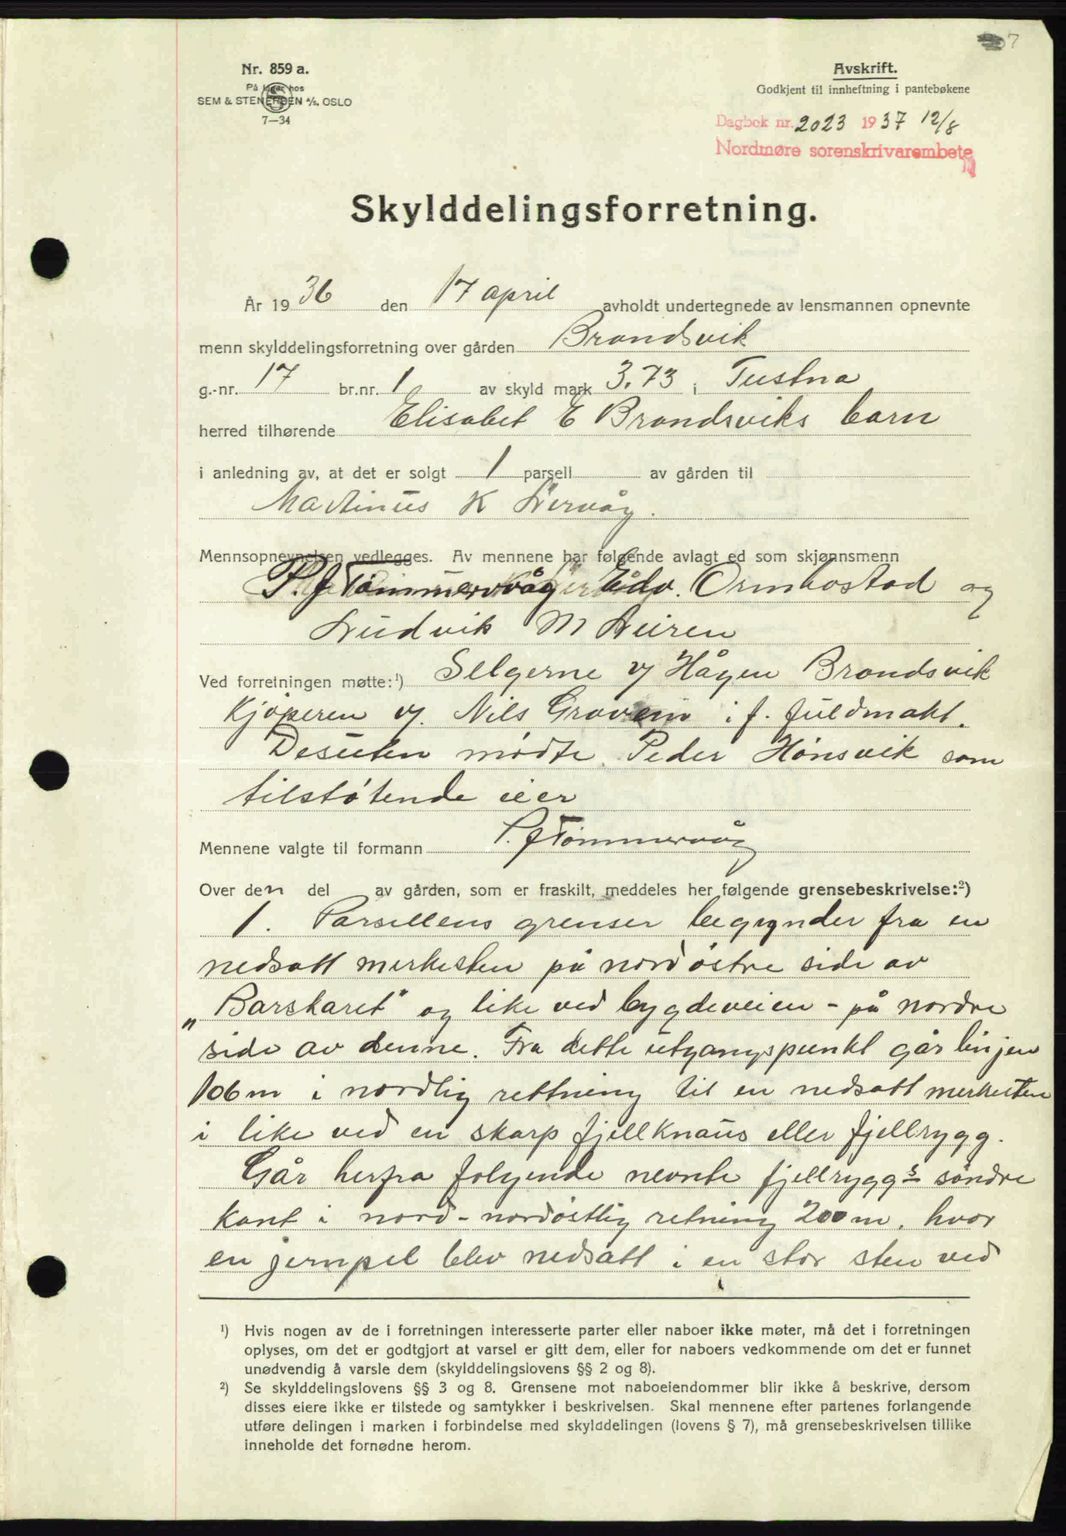 7
Nr. 859 a.
På lager hos
SEM & STENERSEN A/S, OSLO
7—34
Avskrift.
Godkjent til innheftning i pantebøkene
Dagbok nr. 2023 1937 12/8
Nordmøre sorenskrivarembete
Skylddelingsforretning.
År 1936 den 17 april avholdt undertegnede av lensmannen opnevnte
menn skylddelingsforretning over gården Brandsvik
g.-nr. 17 br.nr. 1 av skyld mark 3.73 i Tustna
herred tilhørende Elisabet E Brandsviks barn
i anledning av, at det er solgt 1 parsell av gården til
Martinus K Lervåg.
Mennsopnevnelsen vedlegges. Av mennene har følgende avlagt ed som skjønnsmenn
P. J Tømmervåg Edv. Ormbostad og
Ludvik M Leiren
Ved forretningen møtte:¹) Selgerne v/ Hågen Brandsvik
Kjøperen v/. Nils Gravem i f. fuldmakt.
Desuten mødte Peder Hønsvik som
tilstøtende eier
Mennene valgte til formann P. J Tømmervåg
Over den del av gården, som er fraskilt, meddeles her følgende grensebeskrivelse:²)
1. Parsellens grenser begynder fra en
nedsatt merkesten på nordøstre side av
„Barskaret" og like ved bygdeveien - på nordre
side av denne. Fra dette utgangspunkt går linjen
106 m i nordlig rettning til en nedsatt merkesten
i like ved en skarp fjellknaus eller fjellrygg.
Går herfra følgende nevnte fjellryggs søndre
kant i nord-nordøstlig retning 200 m. hvor
en jernpel blev nedsatt i en stor sten ved
¹) Hvis nogen av de i forretningen interesserte parter eller naboer ikke møter, må det i forretningen
oplyses, om det er godtgjort at varsel er gitt dem, eller for naboers vedkommende om det er funnet
unødvendig å varsle dem (skylddelingslovens §§ 2 og 8).
²) Se skylddelingslovens §§ 3 og 8. Grensene mot naboeiendommer blir ikke å beskrive, dersom
disses eiere ikke er tilstede og samtykker i beskrivelsen. Skal mennene efter partenes forlangende
utføre delingen i marken i forbindelse med skylddelingen (lovens § 7), må grensebeskrivelsen tillike
inneholde det fornødne herom.